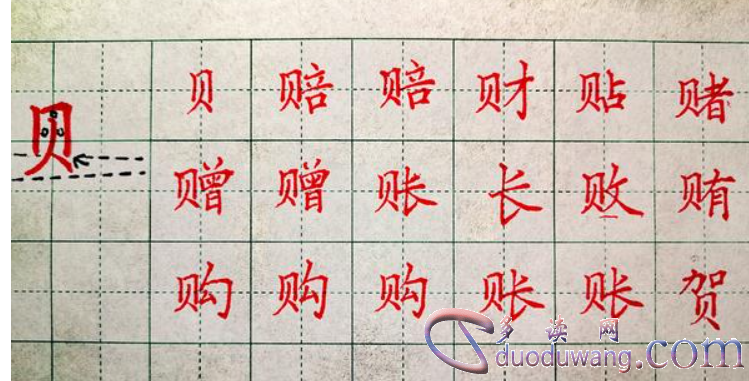 贝
贝 赔 赔 财 贴 赌
赠 赠 账 长 败 贿
购 购 购 账 账 贺
多读网
duoduwang.com